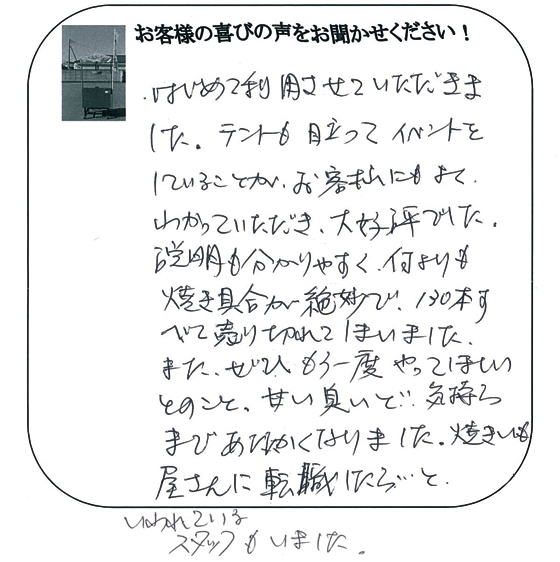 お客様の喜びの声をお聞かせください！
はじめて利用させていただきま
した。テントも目立ってイベントを
していることが、お客払にもよく
わかっていただき、大好評でした。
説明も分かりやすく、何よりも
焼き具合が絶妙で、130本す
べて売り切れてしまいました。
また、ぜひもう一度やってほしい
とのこと。甘い臭いと‥気持ち
まであたたかくなりました。焼きいも
屋さんに転職したら…と
いわれている
スタッフもいました。